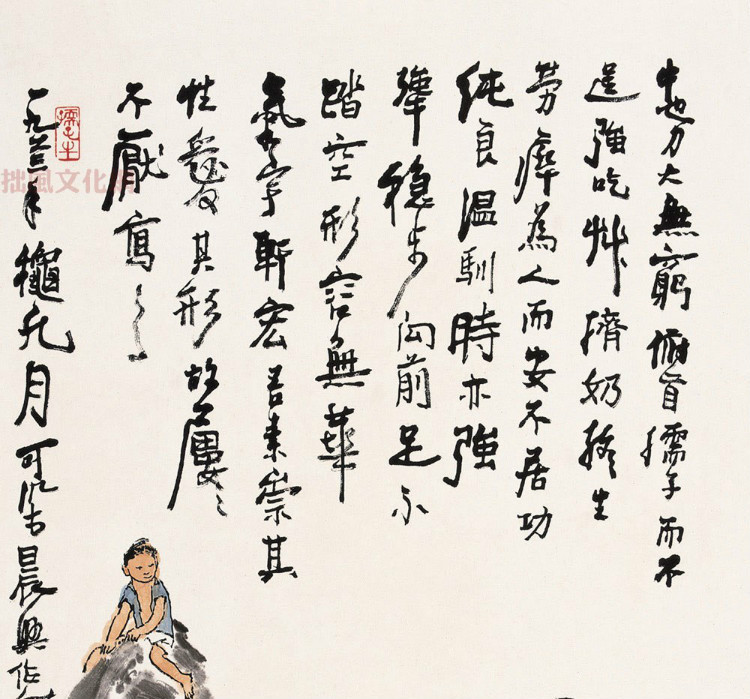 牛也力大無窮俯首孺子而不
逞強吃草擠奶終生
勞瘁為人而安不居功
純良溫馴時亦強
犟穩步向前足不
踏空形容無華
氣宇軒宏吾素崇其
性愛其形故屢々
不厭寫之
一九六二年龝九月可染晨興作
孺子牛
拙風文化網